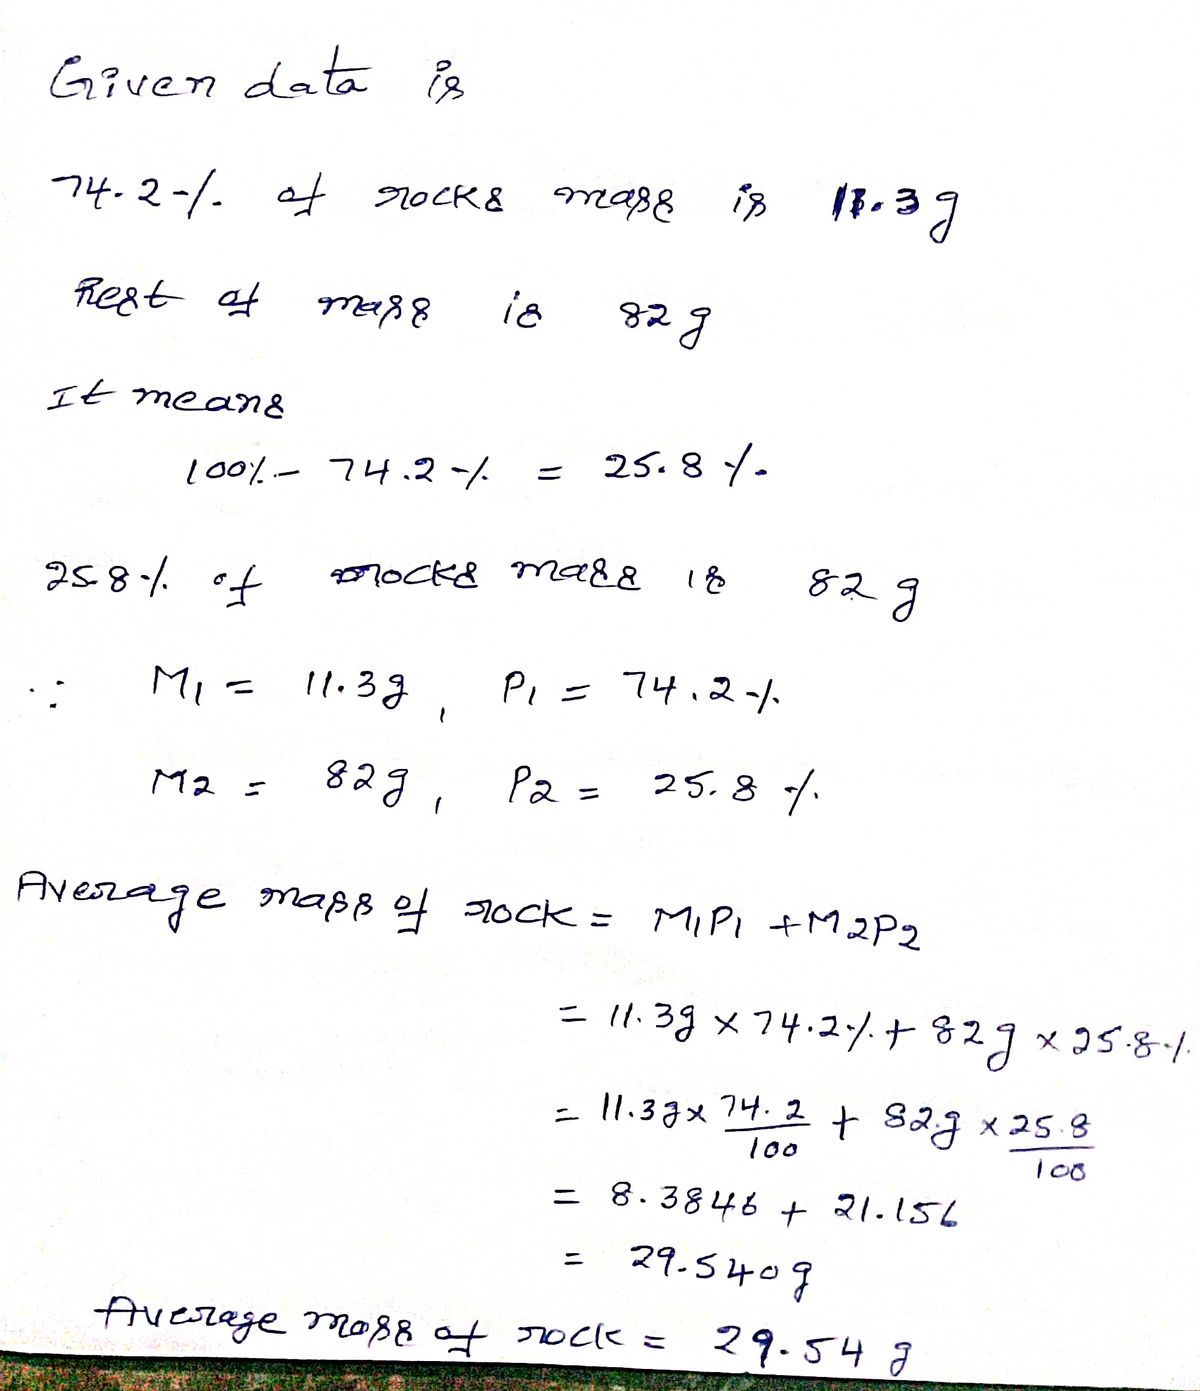 Given data is
74.2% of rocks mass is 11.3g
Rest of mass is 82g
It means
100% - 74.2% = 25.8%
25.8% of rocks mass is 82g
∴ M1 = 11.3g, P1 = 74.2%
M2 = 82g, P2 = 25.8%
Average mass of rock = M1P1 + M2P2
= 11.3g × 74.2% + 82g × 25.8%
= 11.3g × 74.2/100 + 82g × 25.8/100
= 8.3846 + 21.156
= 29.540g
Average mass of rock = 29.54g